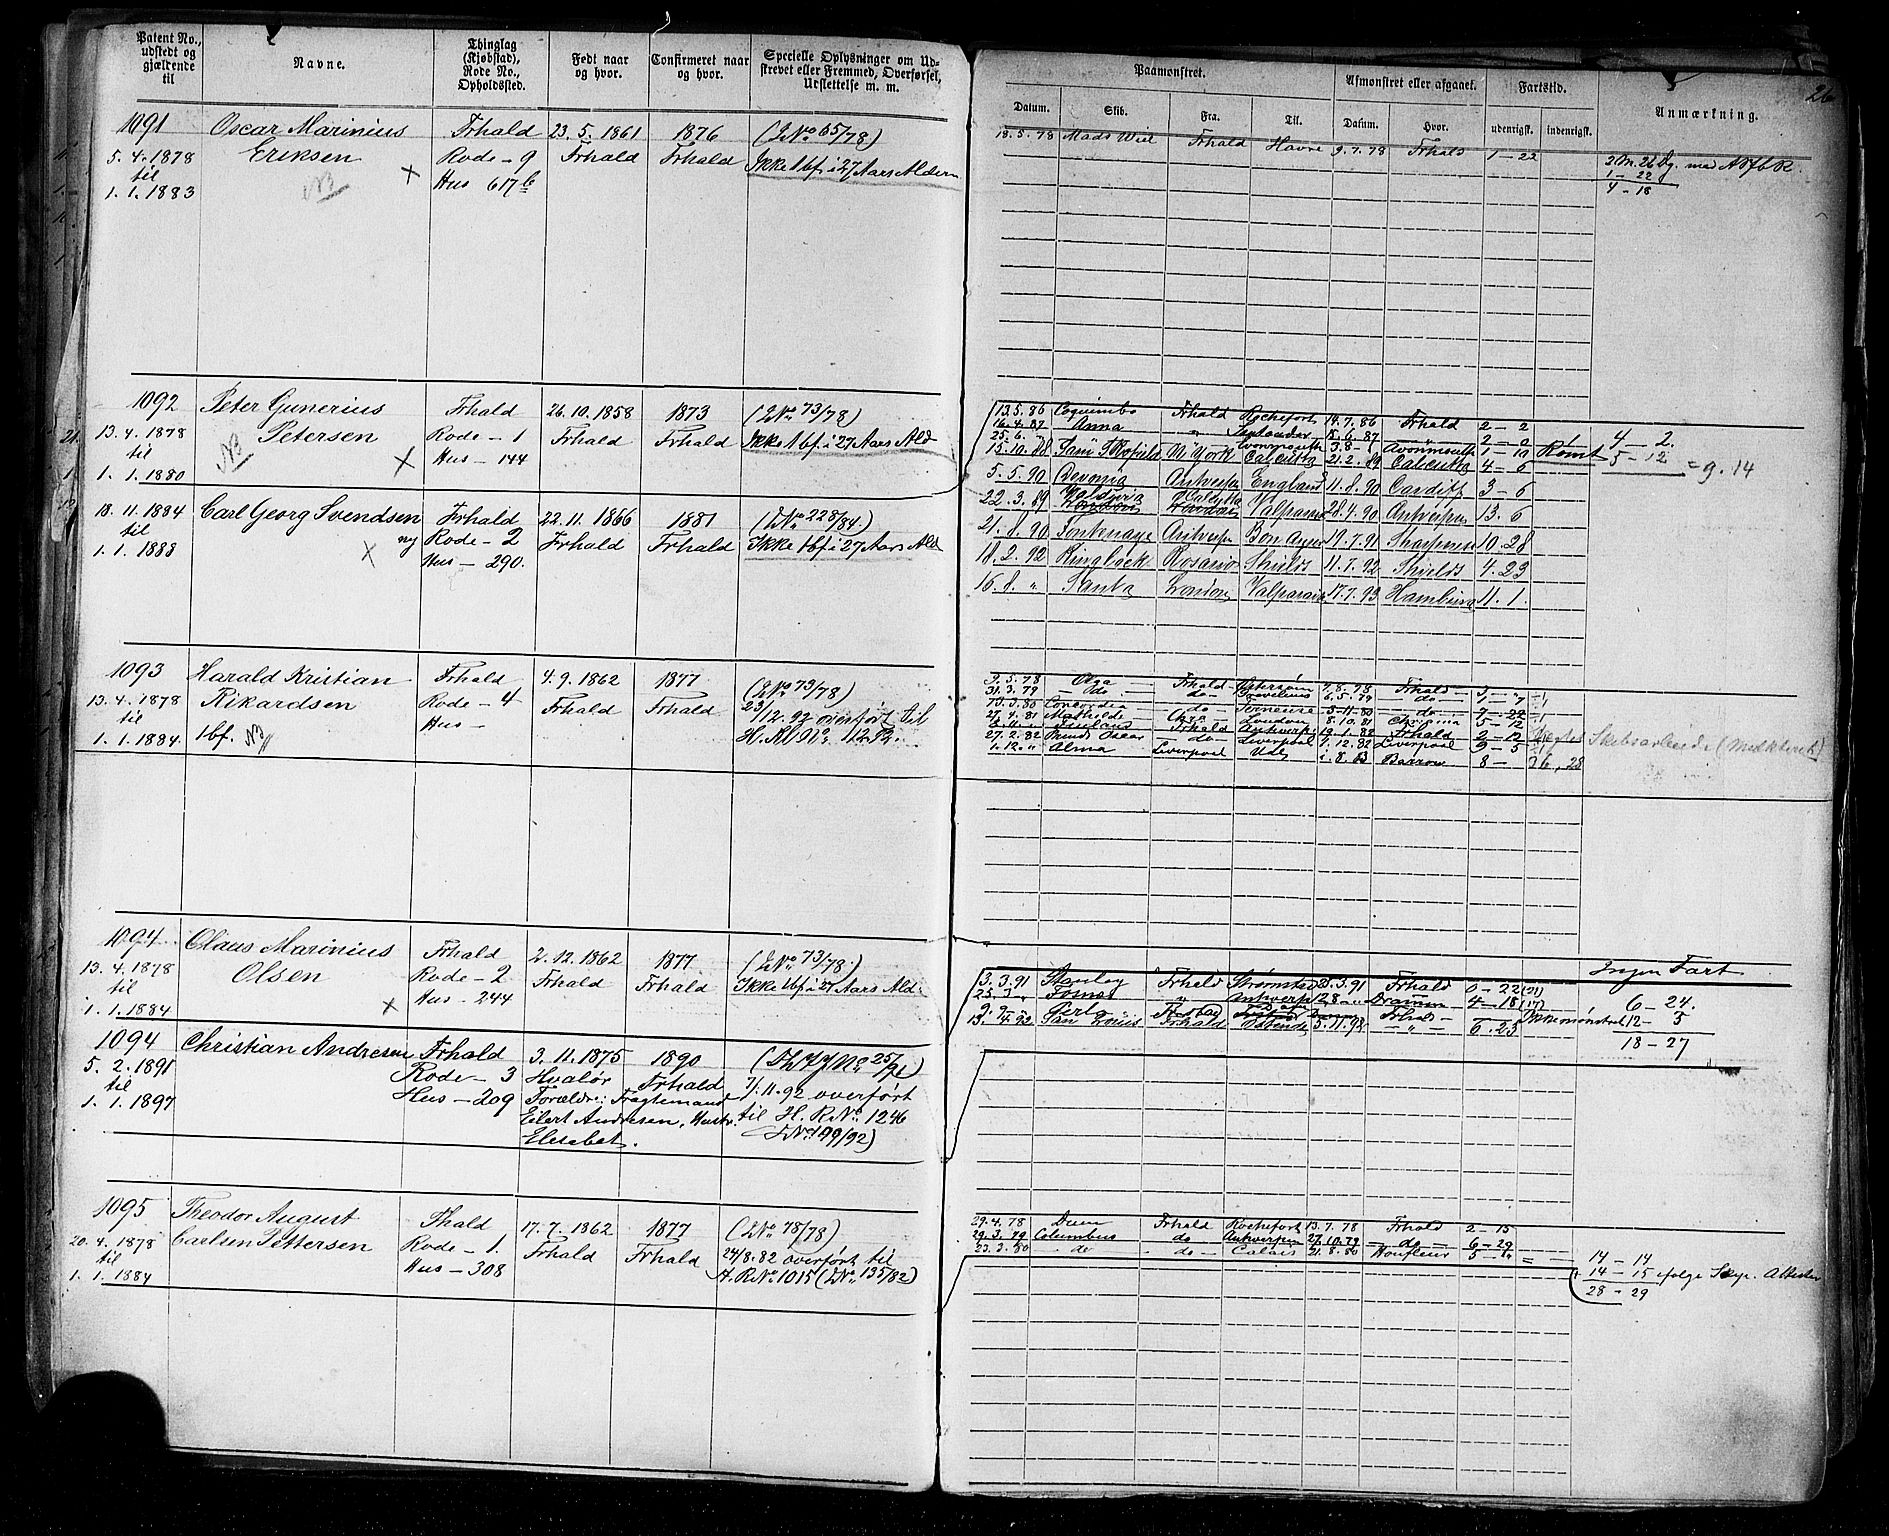 Patent No., udstedt og gjældende til
Navne.
Thinglag (Kjøbstad), Rode No., Opholdssted.
Født naar og hvor.
Confirmeret naar og hvor.
Specielle Oplysninger om Udstrevet eller Fremmed, Overførsel, Udslettelse m. m.
Paamønstret.
Datum.
Skib.
Fra.
Til.
Afmønstret eller afgaaet.
Datum.
Hvor.
Fartstid.
udenrigsk.
indenrigsk.
Anmærkning.
26
1091 Oscar Marinius Frhald 23. 5. 1861 1876 (No 65/78)
5. 4. 1878 Eriksen × Rode - 9 Frhald Frhald Ikke 1bf i 27 Aars Alderen
til NB Hus 617b
1. 1. 1883
18. 5. 78 Mads Wiel Frhald Havre 9. 7. 78 Frhald 1 - 22
2 M. 26 Dg. med
1 - 22
4 - 18
1092 Peter Gunerius Frhald 26. 10. 1858 1873 (No 73/78)
13. 4. 1878 Petersen Rode - 1 Frhald Frhald Ikke 1bf i 27 Aars Ald
til NB × Hus - 144
1. 1. 1880
13.5.86 Coquimbo Frhald Rochefort 14.7.86 Frhald 2 - 2
16.4.87 Anna " 15.6.87 " 2 - 0
25.6. " Avonmouth 3.8 - Avonmouth 1 - 10 Rømt
15.10.88 N. York Calcutta 21.2.89 Calcutta 4 - 6
4 - 2.
5 - 12
= 9. 14
18. 11. 1884 Carl Georg Svendsen Frhald 22. 11. 1866 1881 (No 228/84.)
til ny Rode - 2 Frhald Frhald Ikke 1bf i 27 Aars Ald
1. 1. 1888 × Hus - 290.
5. 5. 90 Devonia Antwerpen England 11. 8. 90 Cardiff 3 - 6
22. 3. 89 Valdivia Calcutta Valparaiso 28. 4. 90 Antwerpen 13. 6
21. 8. 90 Fontenaye Antwerp Bon Ayres 19. 7. 91 Sharpness 10. 28
18. 2. 92 Ringbaek Rosario Shields 11. 7. 92 Shields 4. 23
16. 8. " Santa London Valparaiso 17. 7. 93 Hamburg 11. 1.
1093 Harald Kristian Frhald 4. 9. 1862 1877 (No 73/78)
13. 4. 1878 Rikardsen Rode - 4 Frhald Frhald 23/
til 1bf. NB Hus - 112. 92 overført til
1. 1. 1884.
9.5.78 Olga Frhald 7.8.78 Frhald 3 - 1
31.3.79 do - do - 6.5.79 do
13.3.80 Concordia do - 5.11.80 do - 7 - 22 - 1
27.4.81 Mathilde Chra London 8.10.81 Chrania 5 - 12
Frhald Antwerp 19.1.82 Frhald 2 - 12
27.2.82 Oscar do - Liverpool 1.12.82 Liverpool 9 - 5
1.12. " Alma Liverpool 8. 83 Barrow 8 - 26, 28
1094 Claus Marinius Frhald 2. 12. 1862 1877 (No 73/78)
13. 4. 1878 Olsen Rode - 2 Frhald Frhald Ikke 1bf i 27 Aars Ald
til × Hus - 244
1. 1. 1884
Ingen Fart
3.3.91 Stanley Frhald Strømstad 25.3.91 Frhald 0 - 22 (21)
25.3 - " Antwerp 28 - " Drammen 4 - 18 (17)
13. 4. 92 San Louis Frhald Ostende 5. 11. 92 - " - 6. 25
Ikke mønstret
6 - 24.
12 - 3
18 - 27
1094 Christian Andresen Frhald 3. 11. 1875 1890 (No 25/91)
5. 2. 1891 Rode - 3 Hvalør Frhald 7/11. 92 overført
til Hus - 209 Forældre: Fragtemand til H. R. No. 1246
1. 1. 1897 Eilert Andresen, Hustr. (No 199/92)
Elisabet.
1095 Theodor August Fhald 17. 7. 1862 1877 (No 78/78)
20. 4. 1878 Carlsen Pettersen Rode - 1. Frhald Frhald 24/8. 82 overført til
til Hus - 308 H. R No 1015 (No. 135/82)
1. 1. 1884
29.4.78 Frhald Rochefort 13.7.78 Frhald 2 - 15
29.3.79 Columbus do Antwerpen 27.10.79 - do - 6 - 29
23.2.80 - do - - do - Calais 21.8.80 Honfleur 5
14 - 14
14 - 15 ifølge Skpr. Attester
28 - 29